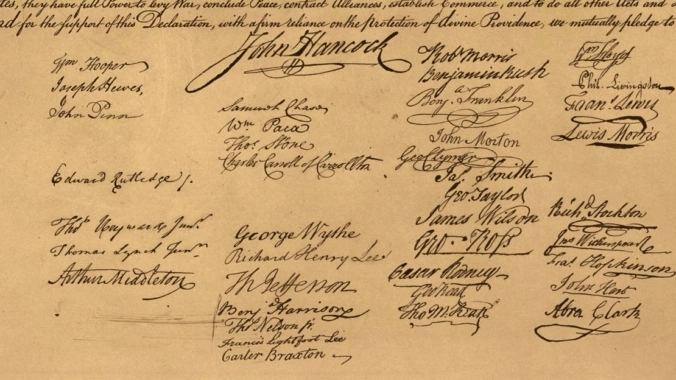 tes, they have full Power to levy War, conclude Peace, contract Alliances, establish Commerce, and to do all other Acts and
for the support of this Declaration, with a firm reliance on the Protection of divine Providence, we mutually pledge to
John Hancock
Wm Hooper
Joseph Hewes,
John Penn
Edward Rutledge /.
Thos Heyward Junr.
Thomas Lynch Junr.
Arthur Middleton
Samuel Chase
Wm. Paca
Thos. Stone
Charles Carroll of Carrollton
George Wythe
Richard Henry Lee
Th Jefferson
Benja Harrison
Thos Nelson jr.
Francis Lightfoot Lee
Carter Braxton
Robt Morris
Benjamin Rush
Benja Franklin
John Morton
Geo Clymer
Jas. Smith
Geo. Taylor
James Wilson
Geo. Ross
Caesar Rodney
Geo Read
Tho M:Kean
Wm Floyd
Phil. Livingston
Frans. Lewis
Lewis Morris
Richd Stockton
Jno Witherspoon
Fras. Hopkinson
John Hart
Abra Clark